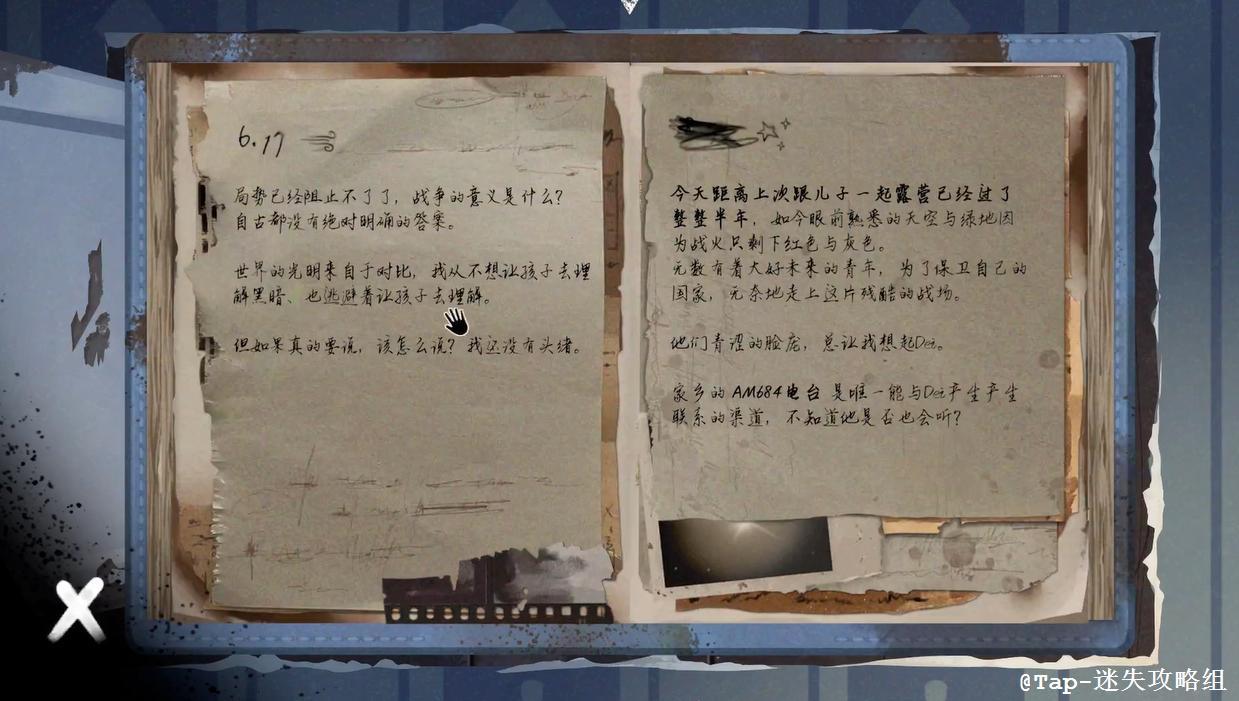 6.17
局势已经阻止不了了，战争的意义是什么？
自古都没有绝对明确的答案。
世界的光明来自于对比，我从不想让孩子去理
解黑暗、也逃避着让孩子去理解。
但如果真的要说，该怎么说？我还没有头绪。
今天距离上次跟儿子一起露营已经过了
整整半年，如今眼前熟悉的天空与绿地因
为战火只剩下红色与灰色。
无数有着大好未来的青年，为了保卫自己的
国家，无奈地走上这片残酷的战场。
他们青涩的脸庞，总让我想起Dei。
家乡的 AM684电台 是唯一能与Dei产生产生
联系的渠道，不知道他是否也会听？
@Tap-迷失攻略组